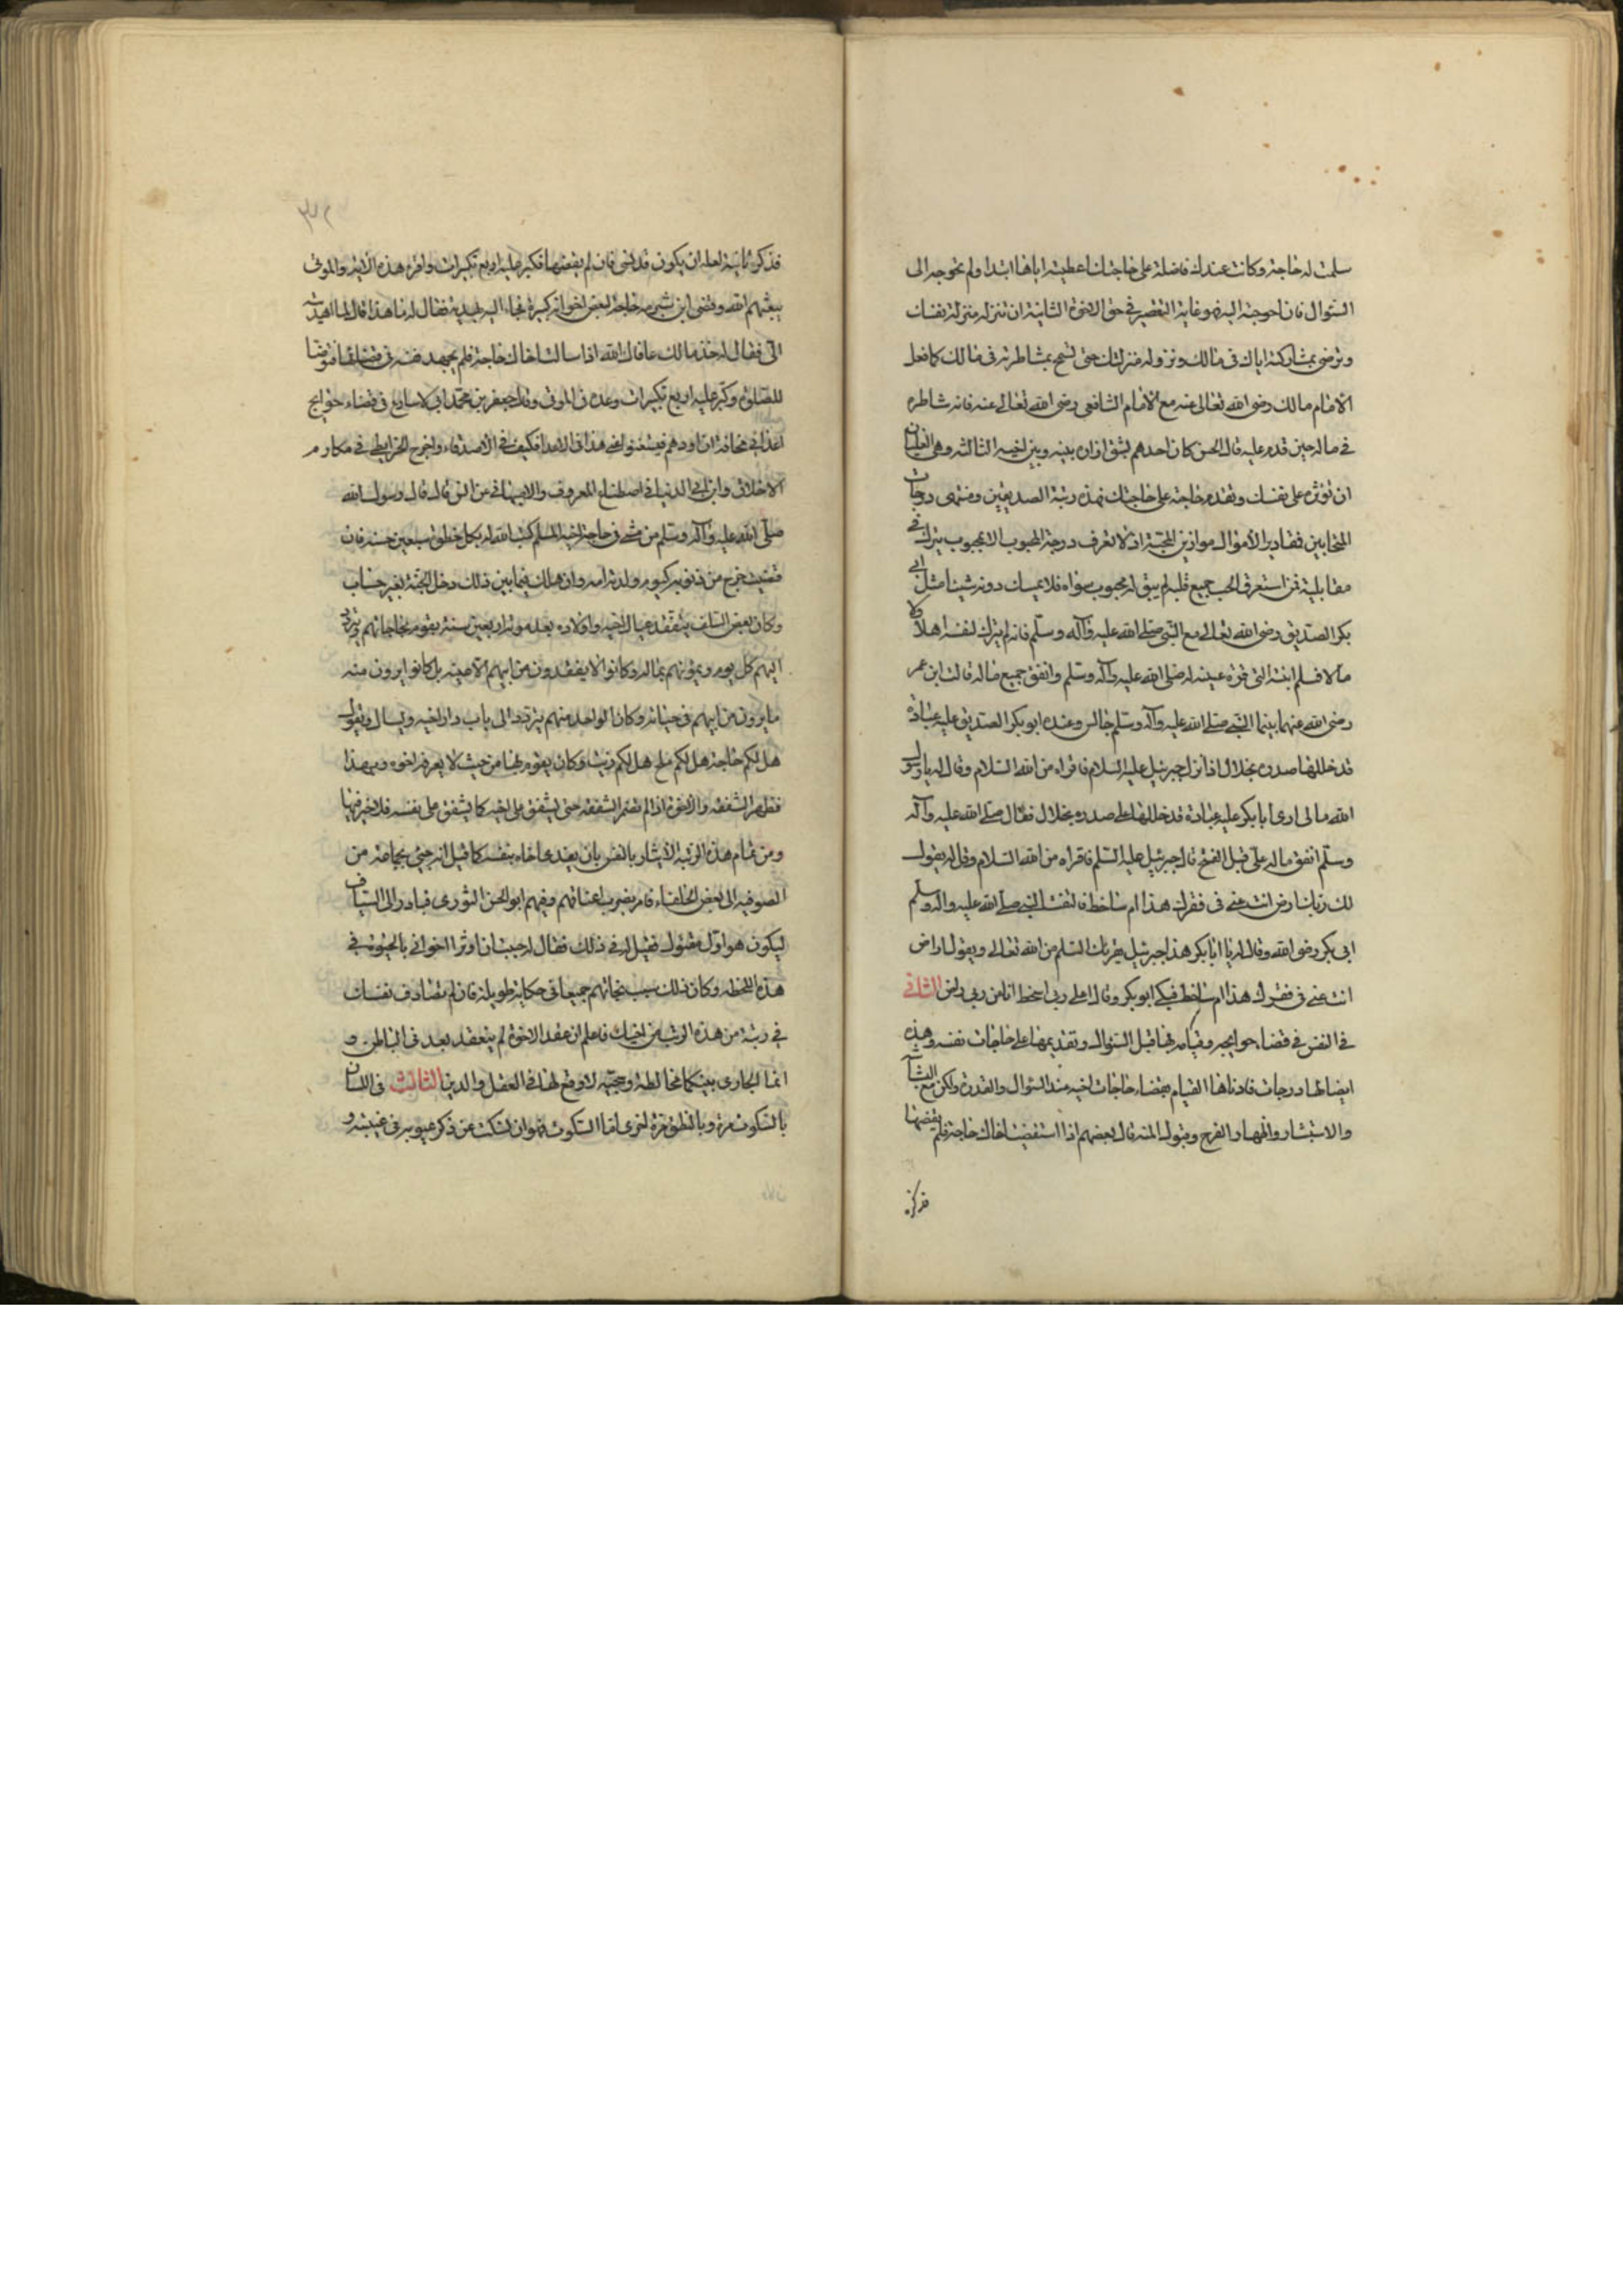 سلمت له حاجة وكانت عندك فاضلة على حاجتك اعطيته اياها ابتدا ولم تحوجه الى
السّؤال فان احوجته اليه فهو غاية التقصير في حق الاخوة الثانية ان تنزله منزلة نفسك
وترضى بمشاركته اياك في مالك ونزوله منزلتك حتى تسمح بمشاطرته في مالك كما فعل
الامام مالك رضى الله تعالى عنه مع الامام الشافعى رضى الله تعالى عنه فانه شاطره
في ماله حين قدم عليه قال الحسن كان احدهم يشق ازاره بينه وبين اخيه الثالثه وهى العليا
ان تؤثره على نفسك وتقدم حاجته على حاجتك فهذه رتبة الصديقين ومنتهى درجات
المتحابين فمقادير الأموال موازين المحبّة اذ لا تعرف درجة المحبوب الا بمحبوب يترك في
مقابلته فمن استغرق الحب جميع قلبه لم يبق له محبوب سواه فلا يمسك دونه شيئا مثل ابى
بكر الصّديق رضى الله تعالى مع النّبى صلى الله عليه وآله وسلّم فانه لم يترك لنفسه اهلا ولا
مالا فسلم ابنته التى قرة عينه له صلى الله عليه وآله وسلم وانفق جميع ماله قال ابن عمر
رضى الله عنهما بينما النبى صلى الله عليه وآله وسلم جالس وعنده ابو بكر الصديق عليه عباءة
قد خللها صدره بخلال اذ انزل جبرئيل عليه السلام فاقراه من الله السّلام وقال له يا رسول
الله مالى ارى ابا بكر عليه عباءة قد خللها على صدره بخلال فقال صلى الله عليه وآله
وسلم انفق ماله على قبل الفتح قال جبرئيل عليه السّلم فاقراه من الله السّلام وقل له يقول
لك ربك اراض انت عنى في فقرك هذا ام ساخط فالتفت النبى صلى الله عليه واله وسلم
ابى بكر رضى الله وقال له يا ابا بكر هذا جبرئيل يقرئك السّلم من الله تعالى ويقول اراض
انت عنى في فقرك هذا ام ساخط فبكى ابو بكر وقال اعلى ربى اسخط انا من ربى راض الثانى
في النفس في قضاء حوايجه وقيامه بها قبل السّؤال وتقديمها على حاجات نفسه وهذه
ايضا لها درجات فادناها القيام بقضاء حاجات اخيه عند السّؤال والقدرة ولكن مع البشاشة
والاستبشار واظهار الفرح وقبول المنة قال بعضهم اذا استقضيت اخاك حاجة فلم يقضها
فذكره
فذكره ثانية لعله ان يكون قد نسى فان لم يقضها فكبر عليه اربع تكبيرات واقره هذه الآية والموتى
يبعثهم الله وقضى ابن شبرمه حاجة لبعض اخوانه كبيرة فجاء اليه بهدية فقال له ما هذا قال لما اهديت
الى فقال له خذ مالك عافاك الله اذا سالت اخاك حاجة فلم يجهد نفسه في قضائها فتوضا
للصّلوة وكبّر عليه اربع تكبيرات وعده في الموتى وقال جعفر بن محمّد انى لاسارع في قضاء حوايج
اعدائى مخافة ان اردهم فيستغنوا عنى هذا في الاعدا فكيف في الاصدقاء واخرج الخرايطى في مكارم
الاخلاق وابن ابى الدنيا في اصطناع المعروف والاصبهانى عن انس قال قال رسول الله
صلّى الله عليه وآله وسلم من مشى في حاجة اخيه المسلم كتب الله له بكل خطوة سبعين حسنة فان
قضيت خرج من ذنوبه كيوم ولدته امه وان هلك فيما بين ذلك دخل الجنّة بغير حساب
وكان بعض السّلف يتفقد عيال اخيه واولاده بعد موته اربعين سنة يقوم بحاجاتهم ويتردد
اليهم كل يوم ويمونهم بماله وكانوا لا يفقدون من ابيهم الا عينه بل كانوا يرون منه
ما يرون من ابيهم في حياته وكان الواحد منهم يتردد الى باب دار اخيه ويسال ويقول
هل لكم حاجة هل لكم ملح هل لكم زيت وكان يقوم بها من حيث لا يعرفه اخوه وبهذا
تظهر الشفقه والاخوة اذا لم تثمر الشفقه حتى يشفق على اخيه كما يشفق على نفسه فلا خير فيها
ومن تمام هذه الرتبة الايثار بالنفس بان يفدى اخاه بنفسه كما قيل انه جئ بجماعة من
الصوفيه الى بعض الخلفاء فامر بضرب اعناقهم وفيهم ابو الحسن النورى فبادر الى السياف
ليكون هو اوّل مقتول فقيل له في ذلك فقال احببت ان اوثر اخوانى بالحيوة في
هذه اللحظه وكان ذلك سبب نجاتهم جميعا في حكاية طويلة فان لم تصادف نفسك
في رتبة من هذه الرتب من اخيك فاعلم ان عقد الاخوة لم ينعقد بعد في الباطن و
انما الجارى بينكما مخالطة وحجبّه لا وقع لها في العقل والدين الثالث في اللسان
بالسّكوت مرة وبالنطق مرة اخرى اما السّكوت فهو ان تسكت عن ذكر عيوبه في غيبته و